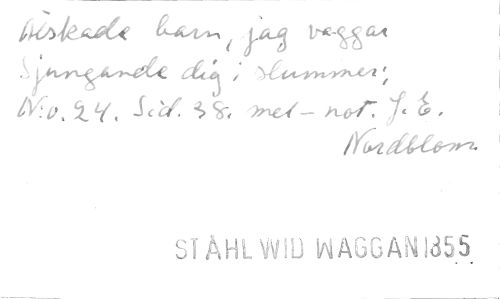 Älskade barn, jag vaggar
Sjungande dig i slummer;
N:o. 24. Sid. 38. mel-not. J. E.
Nordblom.
STÅHL WID WAGGAN 1855